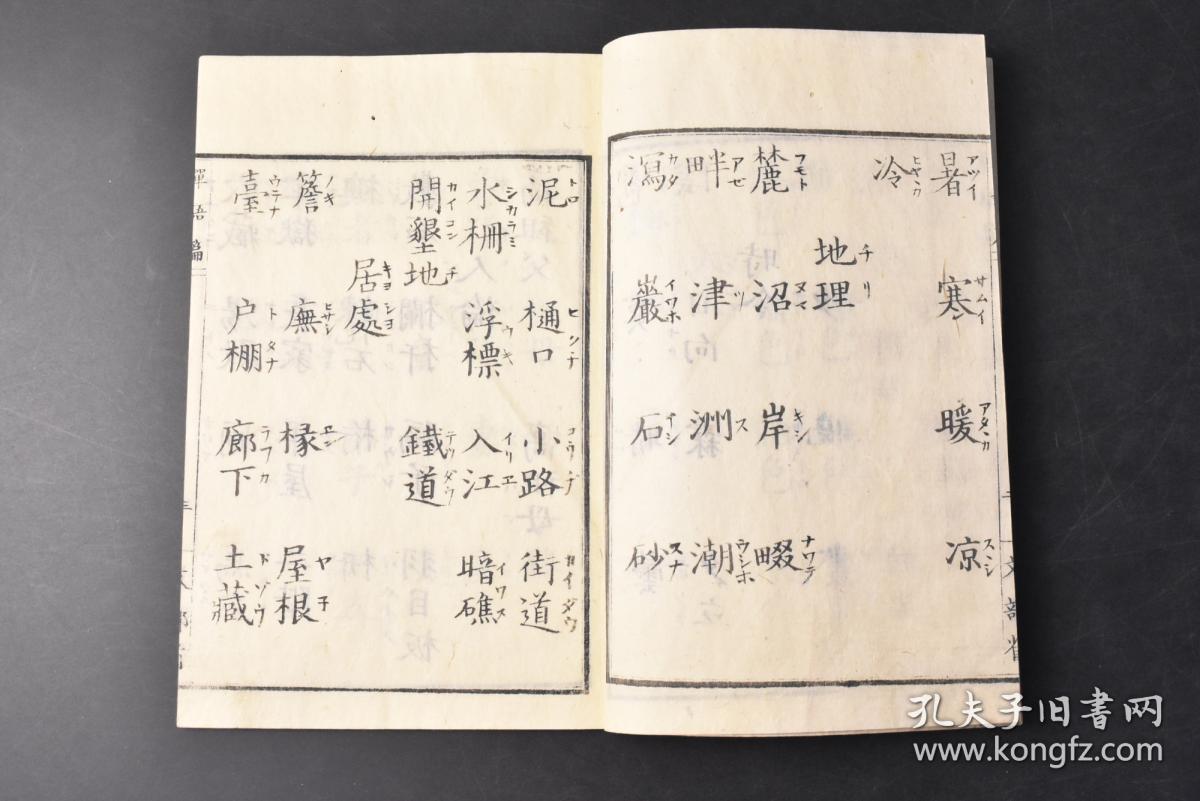 暑アツイ 寒サムイ 暖アタヽカ 凉スヽシ
冷ヒヤヽカ
地理チリ
麓フモト 沼ヌマ 岸キシ 畷ナワテ
畔アゼ 津ツ 洲ス 潮ウシホ
瀉カタ 巖イワホ 石イシ 砂スナ
泥トロ 樋口 小路コウヂ 街道カイダウ
水柵シカラミ 浮標ウキ 入江イリエ 暗礁イワス
開墾地カイコンチ 鐵道テツダウ
居處キヨシヨ
簷ノキ 廡ヒサシ 椽エン 屋根ヤ子
臺ウテナ 戸棚トタナ 廊下ラフカ 土藏ドゾウ
單語篇二
文部省
孔夫子旧书网
www.kongfz.com